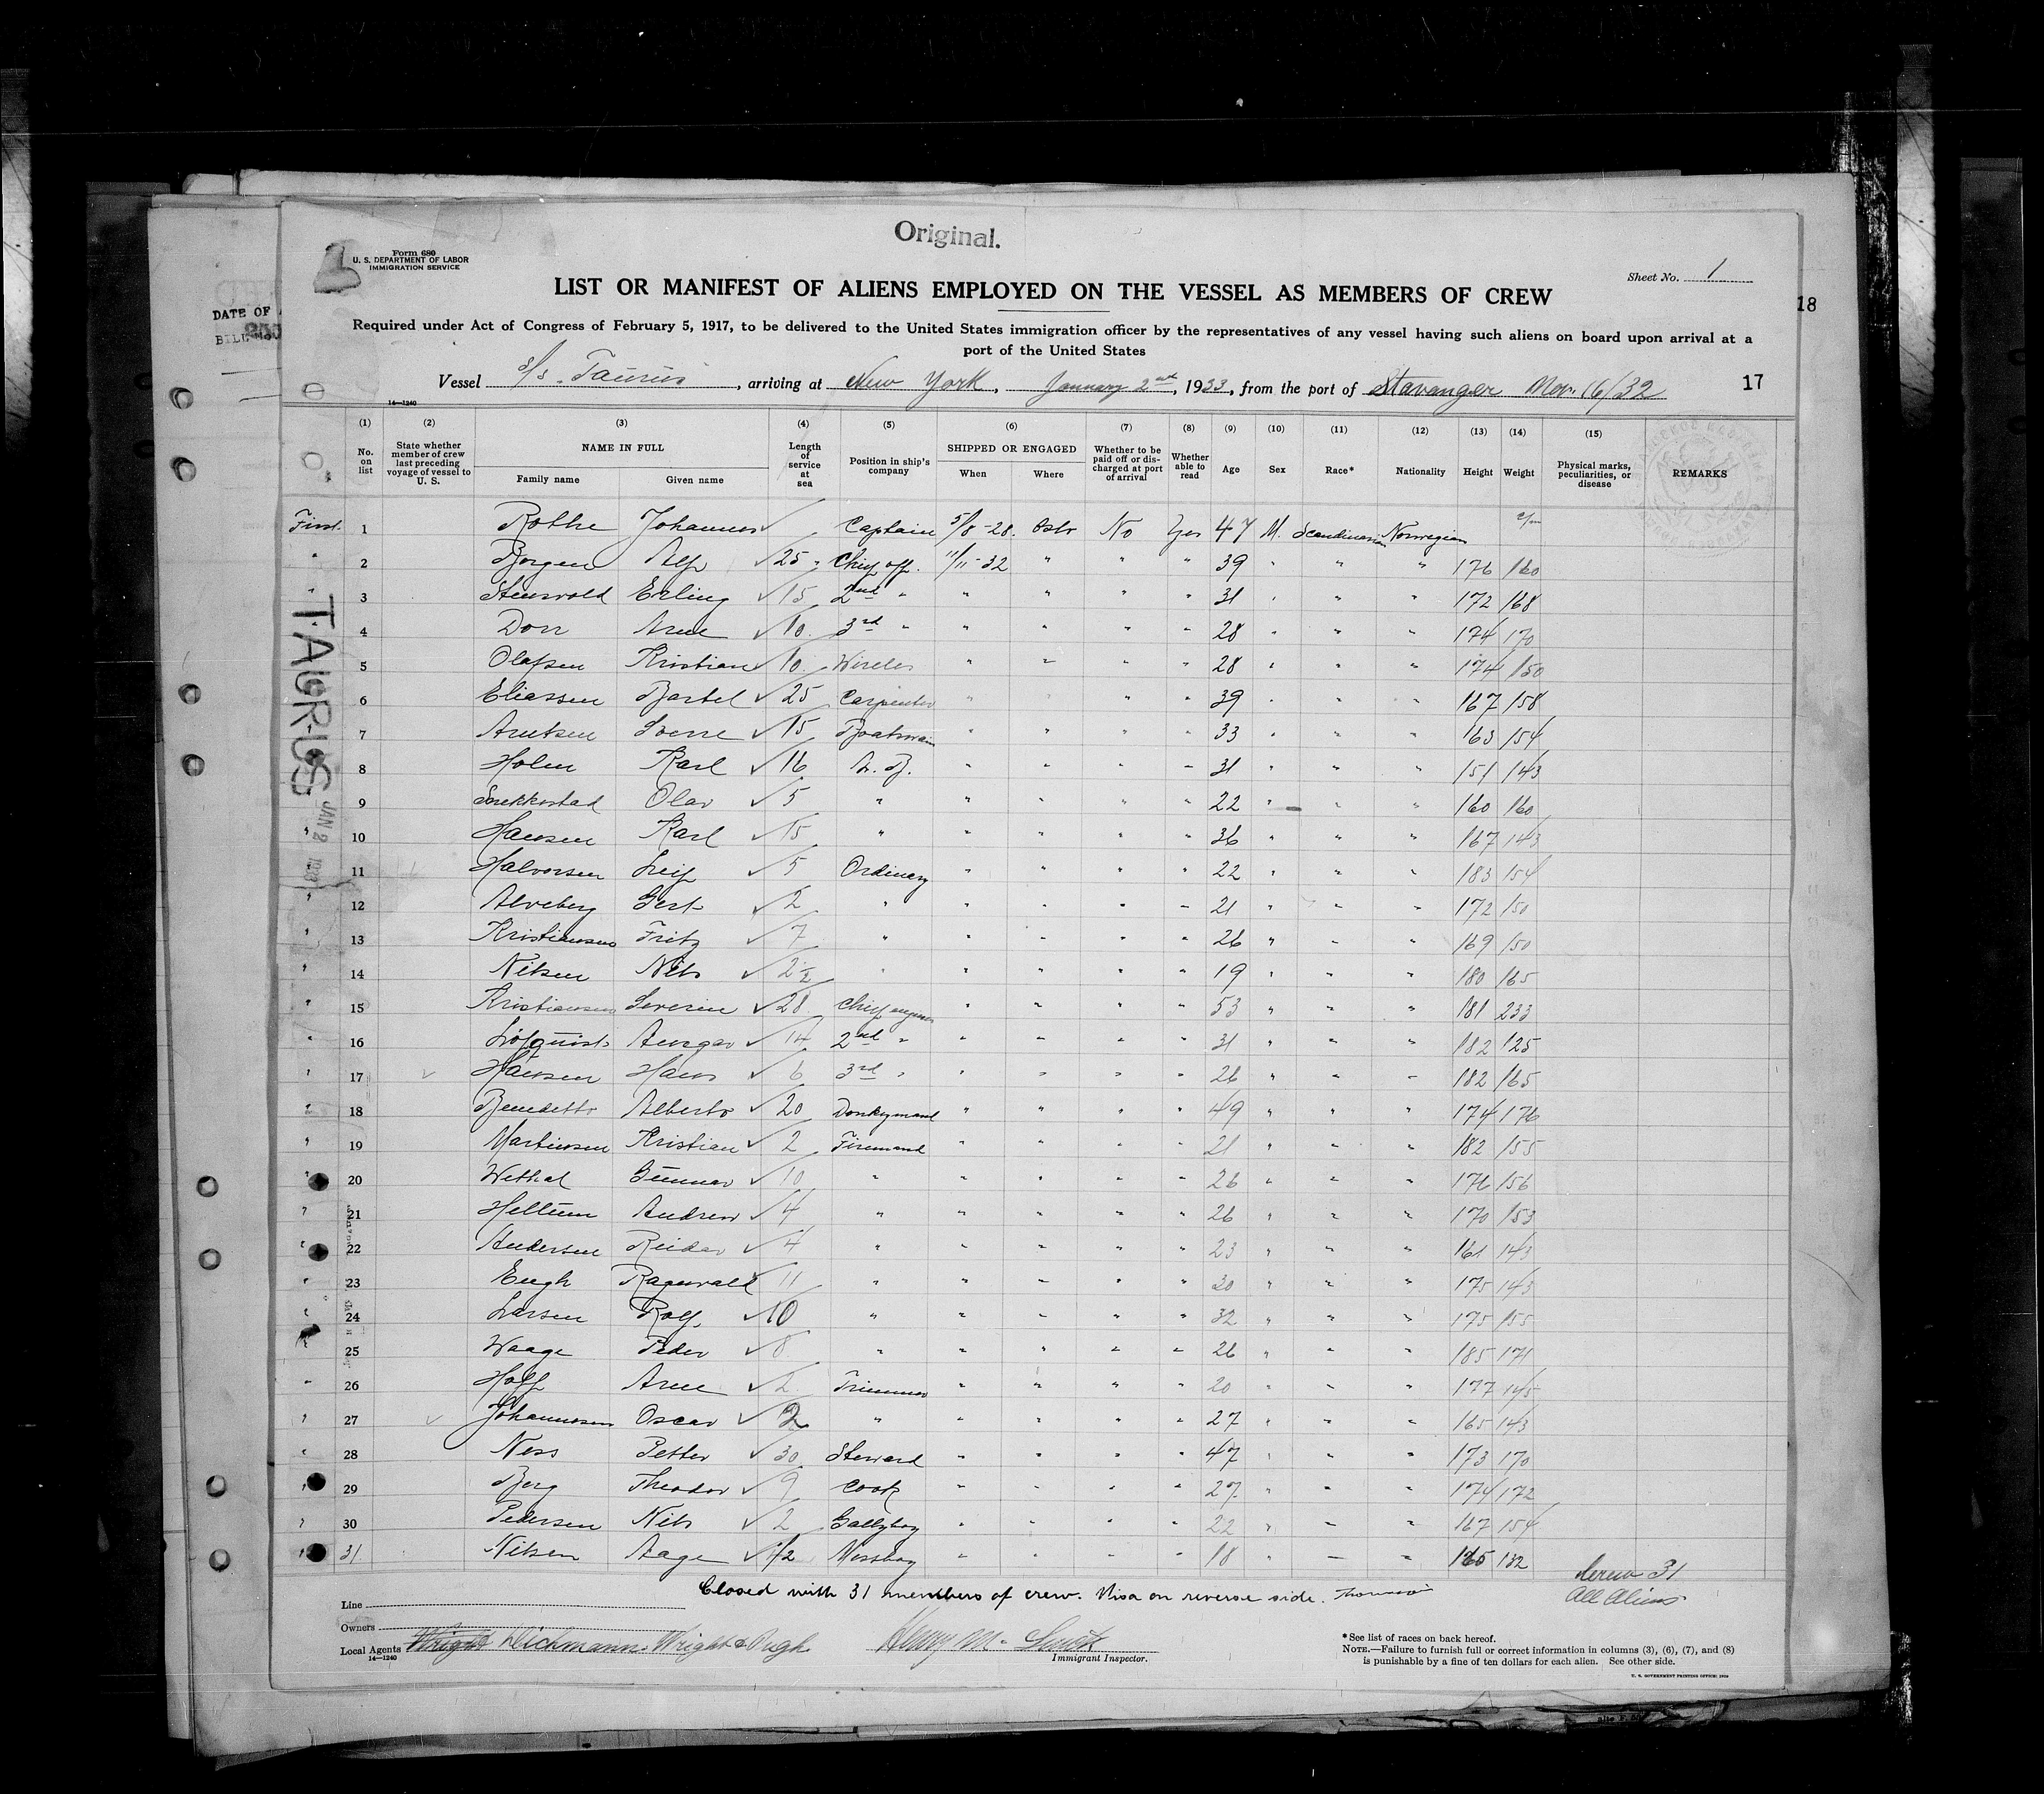 Original.
Form 680
U. S. DEPARTMENT OF LABOR
IMMIGRATION SERVICE
Sheet No. 1
LIST OR MANIFEST OF ALIENS EMPLOYED ON THE VESSEL AS MEMBERS OF CREW
18
DATE OF
Required under Act of Congress of February 5, 1917, to be delivered to the United States immigration officer by the representatives of any vessel having such aliens on board upon arrival at a
port of the United States
Vessel S/s. Taurus, arriving at New York, January 2nd, 1933, from the port of Stavanger Nov. 16/32
17
14—1240
(1) (2) (3) (4) (5) (6) (7) (8) (9) (10) (11) (12) (13) (14) (15)
No. on list State whether member of crew last preceding voyage of vessel to U. S. NAME IN FULL Family name Given name Length of service at sea Position in ship's company SHIPPED OR ENGAGED When Where Whether to be paid off or discharged at port of arrival Whether able to read Age Sex Race* Nationality Height Weight Physical marks, peculiarities, or disease REMARKS
First 1 Rothe Johannes Captain 5/8-28. Oslo No Yes 47 M. Scandinavian Norwegian c/m
" 2 Borgen Alf 25 " Chief off. 11/11-32 " " " 39 " " " 176 160
" 3 Stensvold Erling 15 2nd " " " " " 31 " " " 172 168
4 Dorr Arne 10. 3rd " " " " " 28 " " " 174 170
5 Olafsen Kristian 10. Wireles " " " " 28 " " " 174 150
6 Eliassen Bartel 25 Carpenter " " " " 39 " " " 167 158
7 Arntsen Sverre 15 Boatswain " " " " 33 " " " 163 154
8 Holm Karl 16 A. B. " " " " 31 " " " 151 143
9 Snekkestad Olav 5 " " " " " 22 " " " 160 160
" 10 Hansen Karl 15 " " " " " 36 " " " 167 143
11 Halvorsen Leif 5 Ordinary " " " " 22 " " " 183 154
" 12 Alveberg Gert 2 " " " " " 21 " " " 172 150
" 13 Kristiansen Fritz 7 " " " " " 26 " " " 169 150
" 14 Nilsen Nils 2 1/2 " " " " " 19 " " " 180 165
" 15 Kristiansen Severin 28 Chief engineer " " " " 53 " " " 181 233
" 16 Löfquist Ansgar 14 2nd " " " " " 31 " " " 182 125
" 17 Hansen Hans 6 3rd " " " " " 26 " " " 182 165
" 18 Benedetto Alberto 20 Donkeymand " " " " 49 " " " 174 176
" 19 Martinsen Kristian 2 Firemand " " " " 21 " " " 182 155
" 20 Wethal Gunnar 10 " " " " " 26 " " " 176 156
" 21 Hellum Andrew 4 " " " " " 26 " " " 170 153
" 22 Andersen Reidar 4 " " " " " 23 " " " 161 143
" 23 Engh Ragnvald 11 " " " " " 30 " " " 175 143
" 24 Larsen Rolf 10 " " " " " 32 " " " 175 155
25 Waage Peder 8 " " " " " 26 " " " 185 171
" 26 Hoff Arne 2 Trimmer " " " " 20 " " " 177 145
" 27 Johannesen Oscar 2 " " " " " 27 " " " 165 143
" 28 Ness Petter 30 Steward " " " " 47 " " " 173 170
" 29 Berg Theodor 9 Cook " " " " 27 " " " 174 172
" 30 Pedersen Nils 2 Galleyboy " " " " 22 " " " 167 154
" 31 Nilsen Aage 1/2 Messboy " " " " 18 " " " 165 132
TAURUS
JAN 2 1933
Closed with 31 members of crew. Visa on reverse side.
Crew 31
All Aliens
Line
Owners
Local Agents Wright Dichmann, Wright & Pugh
14—1240
Henry M. Smith
Immigrant Inspector.
*See list of races on back hereof.
NOTE.—Failure to furnish full or correct information in columns (3), (6), (7), and (8)
is punishable by a fine of ten dollars for each alien. See other side.